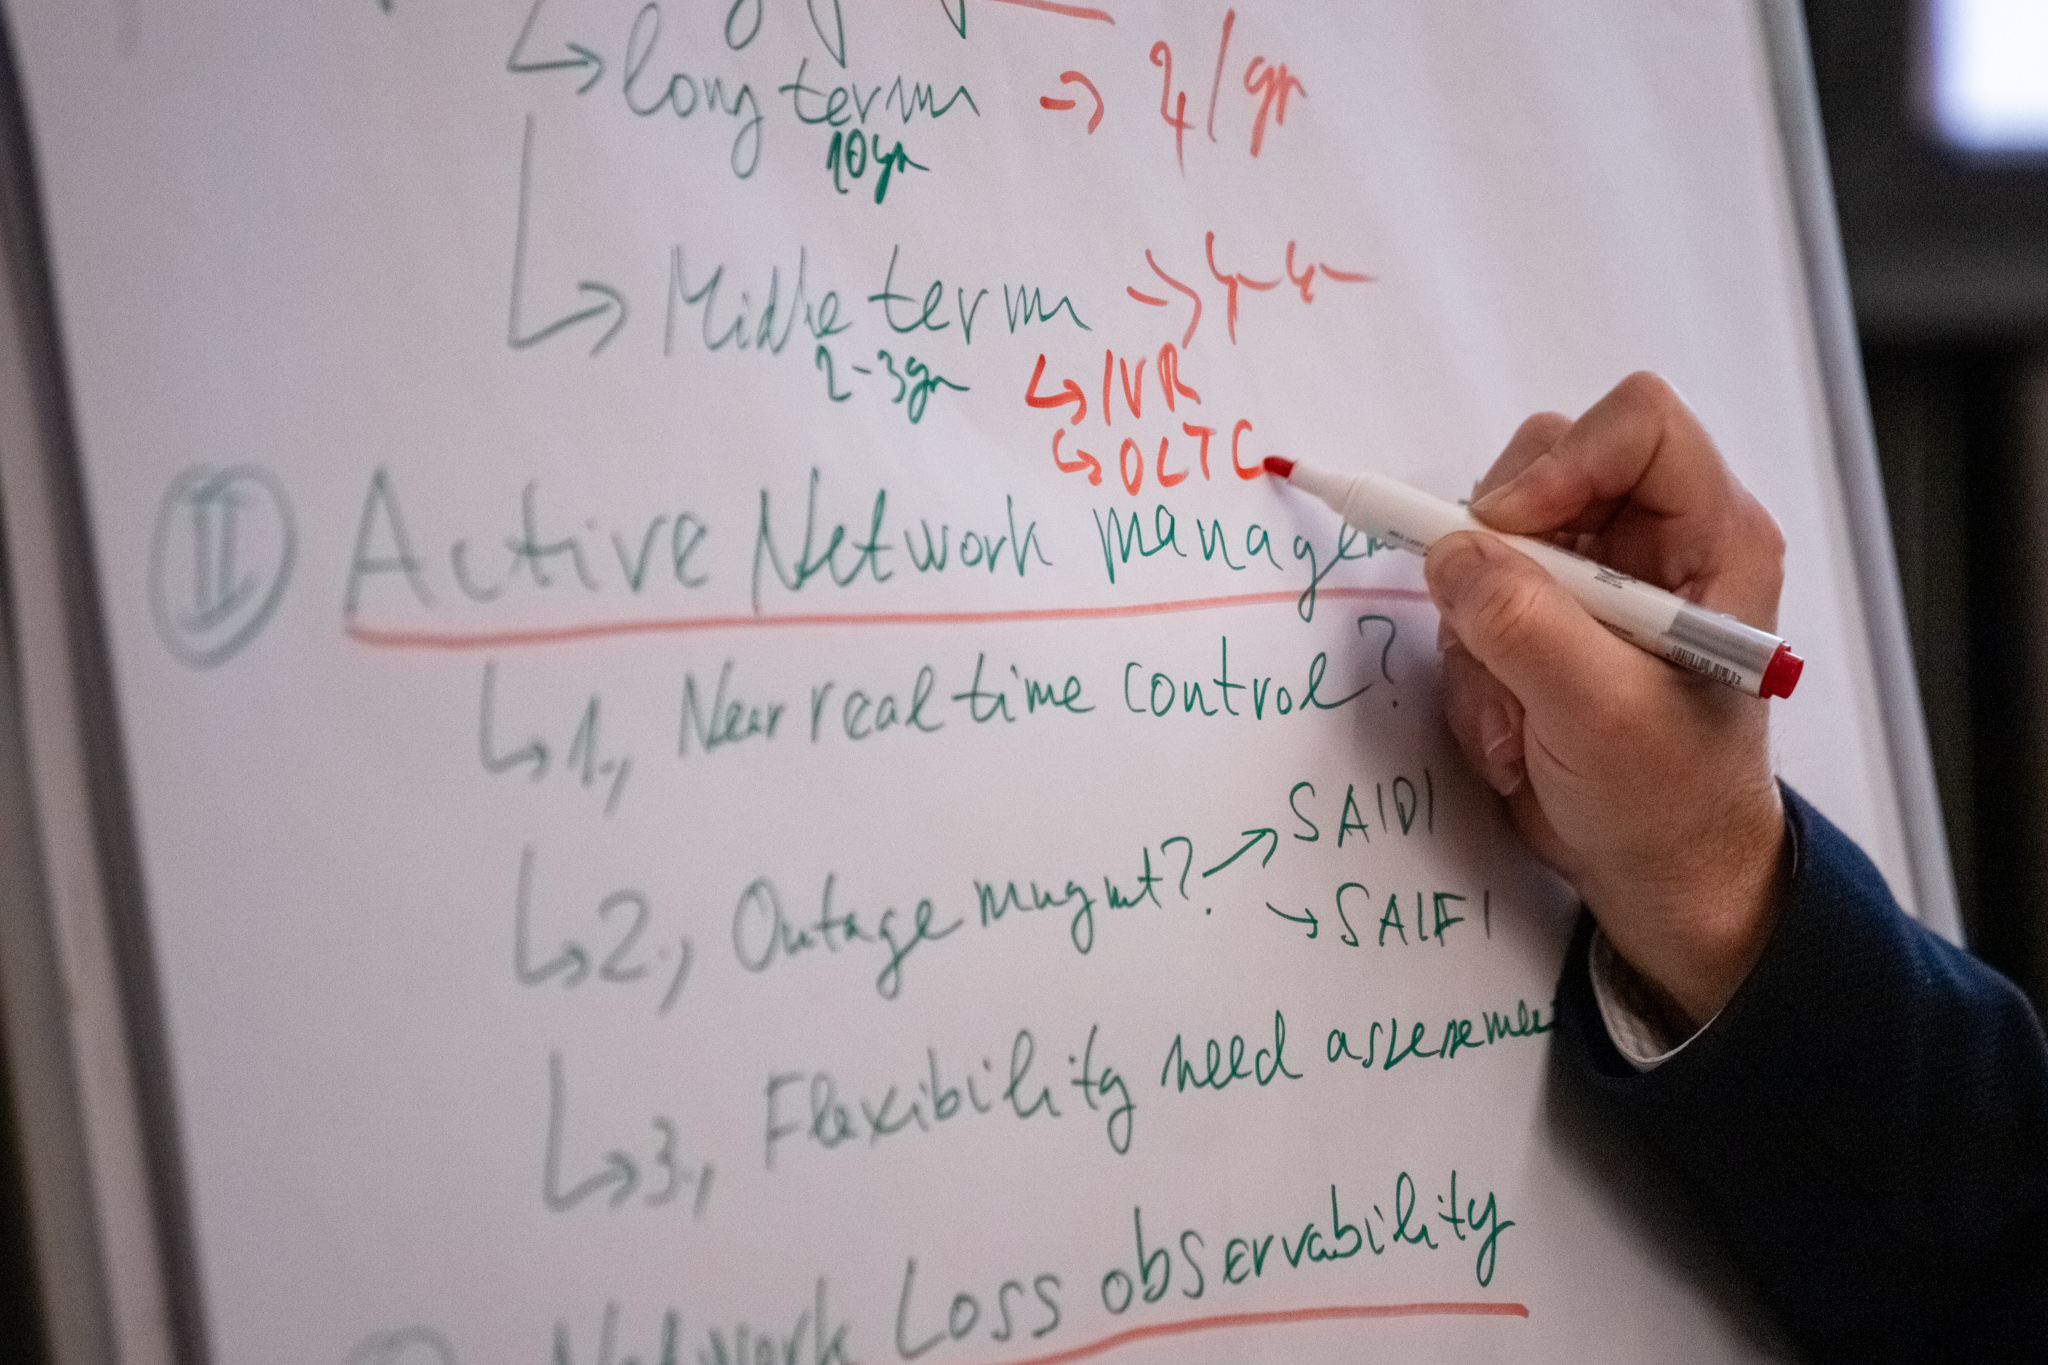 → long term → 4/yr
10yr
→ Middle term →
2-3yr → IVR
→ OLTC
II Active Network managem
→ 1., Near real time control?
→ 2., Outage mngmt? → SAIDI
→ SAIFI
→ 3., Flexibility need assessmen
Network Loss observability